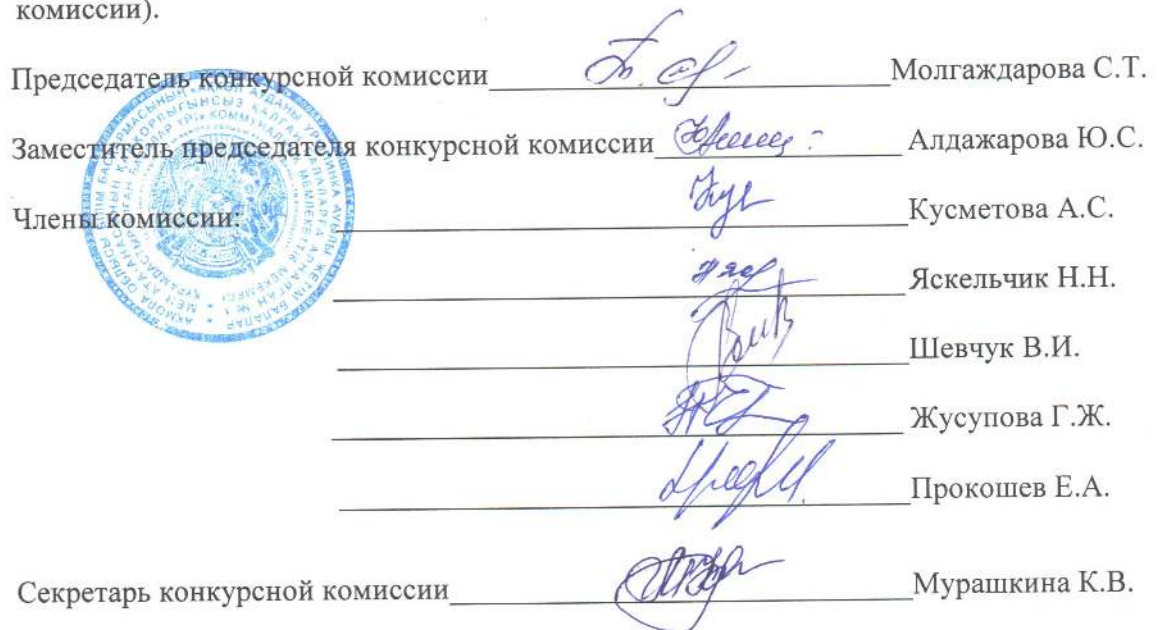 комиссии).
Председатель конкурсной комиссии Молгаждарова С.Т.
Заместитель председателя конкурсной комиссии Алдажарова Ю.С.
Члены комиссии: Кусметова А.С.
Яскельчик Н.Н.
Шевчук В.И.
Жусупова Г.Ж.
Прокошев Е.А.
Секретарь конкурсной комиссии Мурашкина К.В.